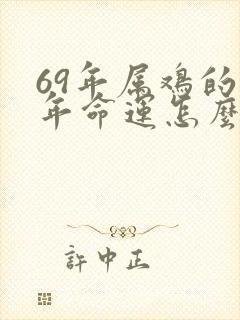 69年属鸡的
年命运怎麽
許中正